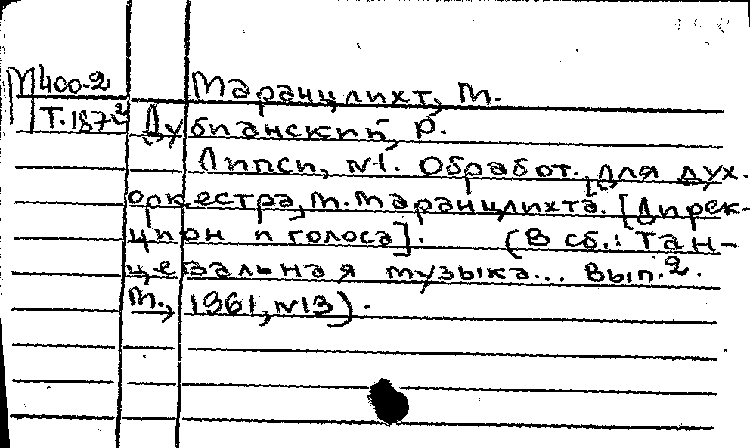 М 400-2 Маранцлихт, М.
Т.1872 Дубианский, Р.
Липси, №1. Обработ. для дух.
оркестра, М. Маранцлихта. [Дирек-
цион и голоса]. (В сб.: Тан-
цевальная музыка... Вып. 2.
М., 1961, №13).